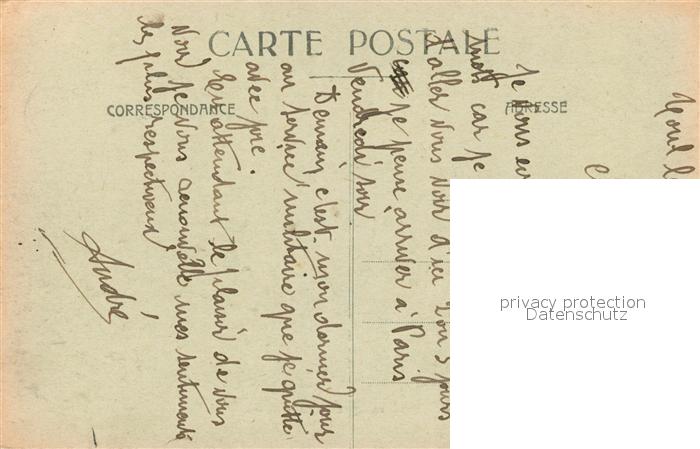 CARTE POSTALE
CORRESPONDANCE
ADRESSE
Je vous
mot car je
d'aller vous voir d'ici 2 ou 3 jours
je pense arriver à Paris
Vendredi soir
Demain c'est mon dernier jour
au service militaire que je quitte
avec joie.
En attendant le plaisir de vous
voir je vous renouvelle mes sentiments
les plus respectueux
André
privacy protection
Datenschutz